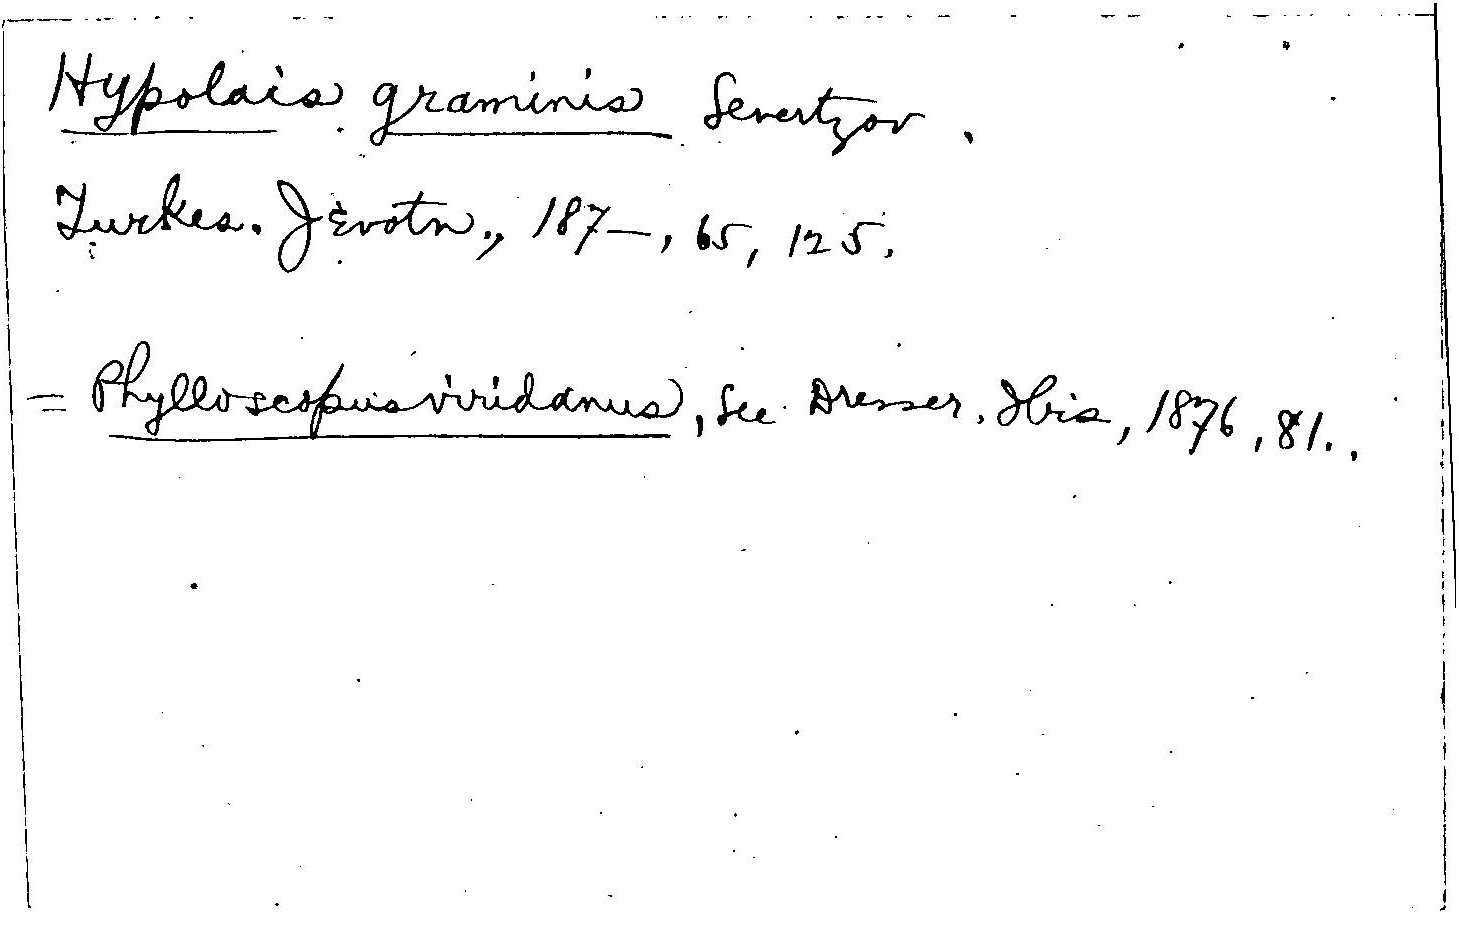 Hypolais graminis Severtzov.
Turkes. Jevotn., 187-, 65, 125.
= Phylloscopus viridanus, See Dresser, Ibis, 1876, 81.